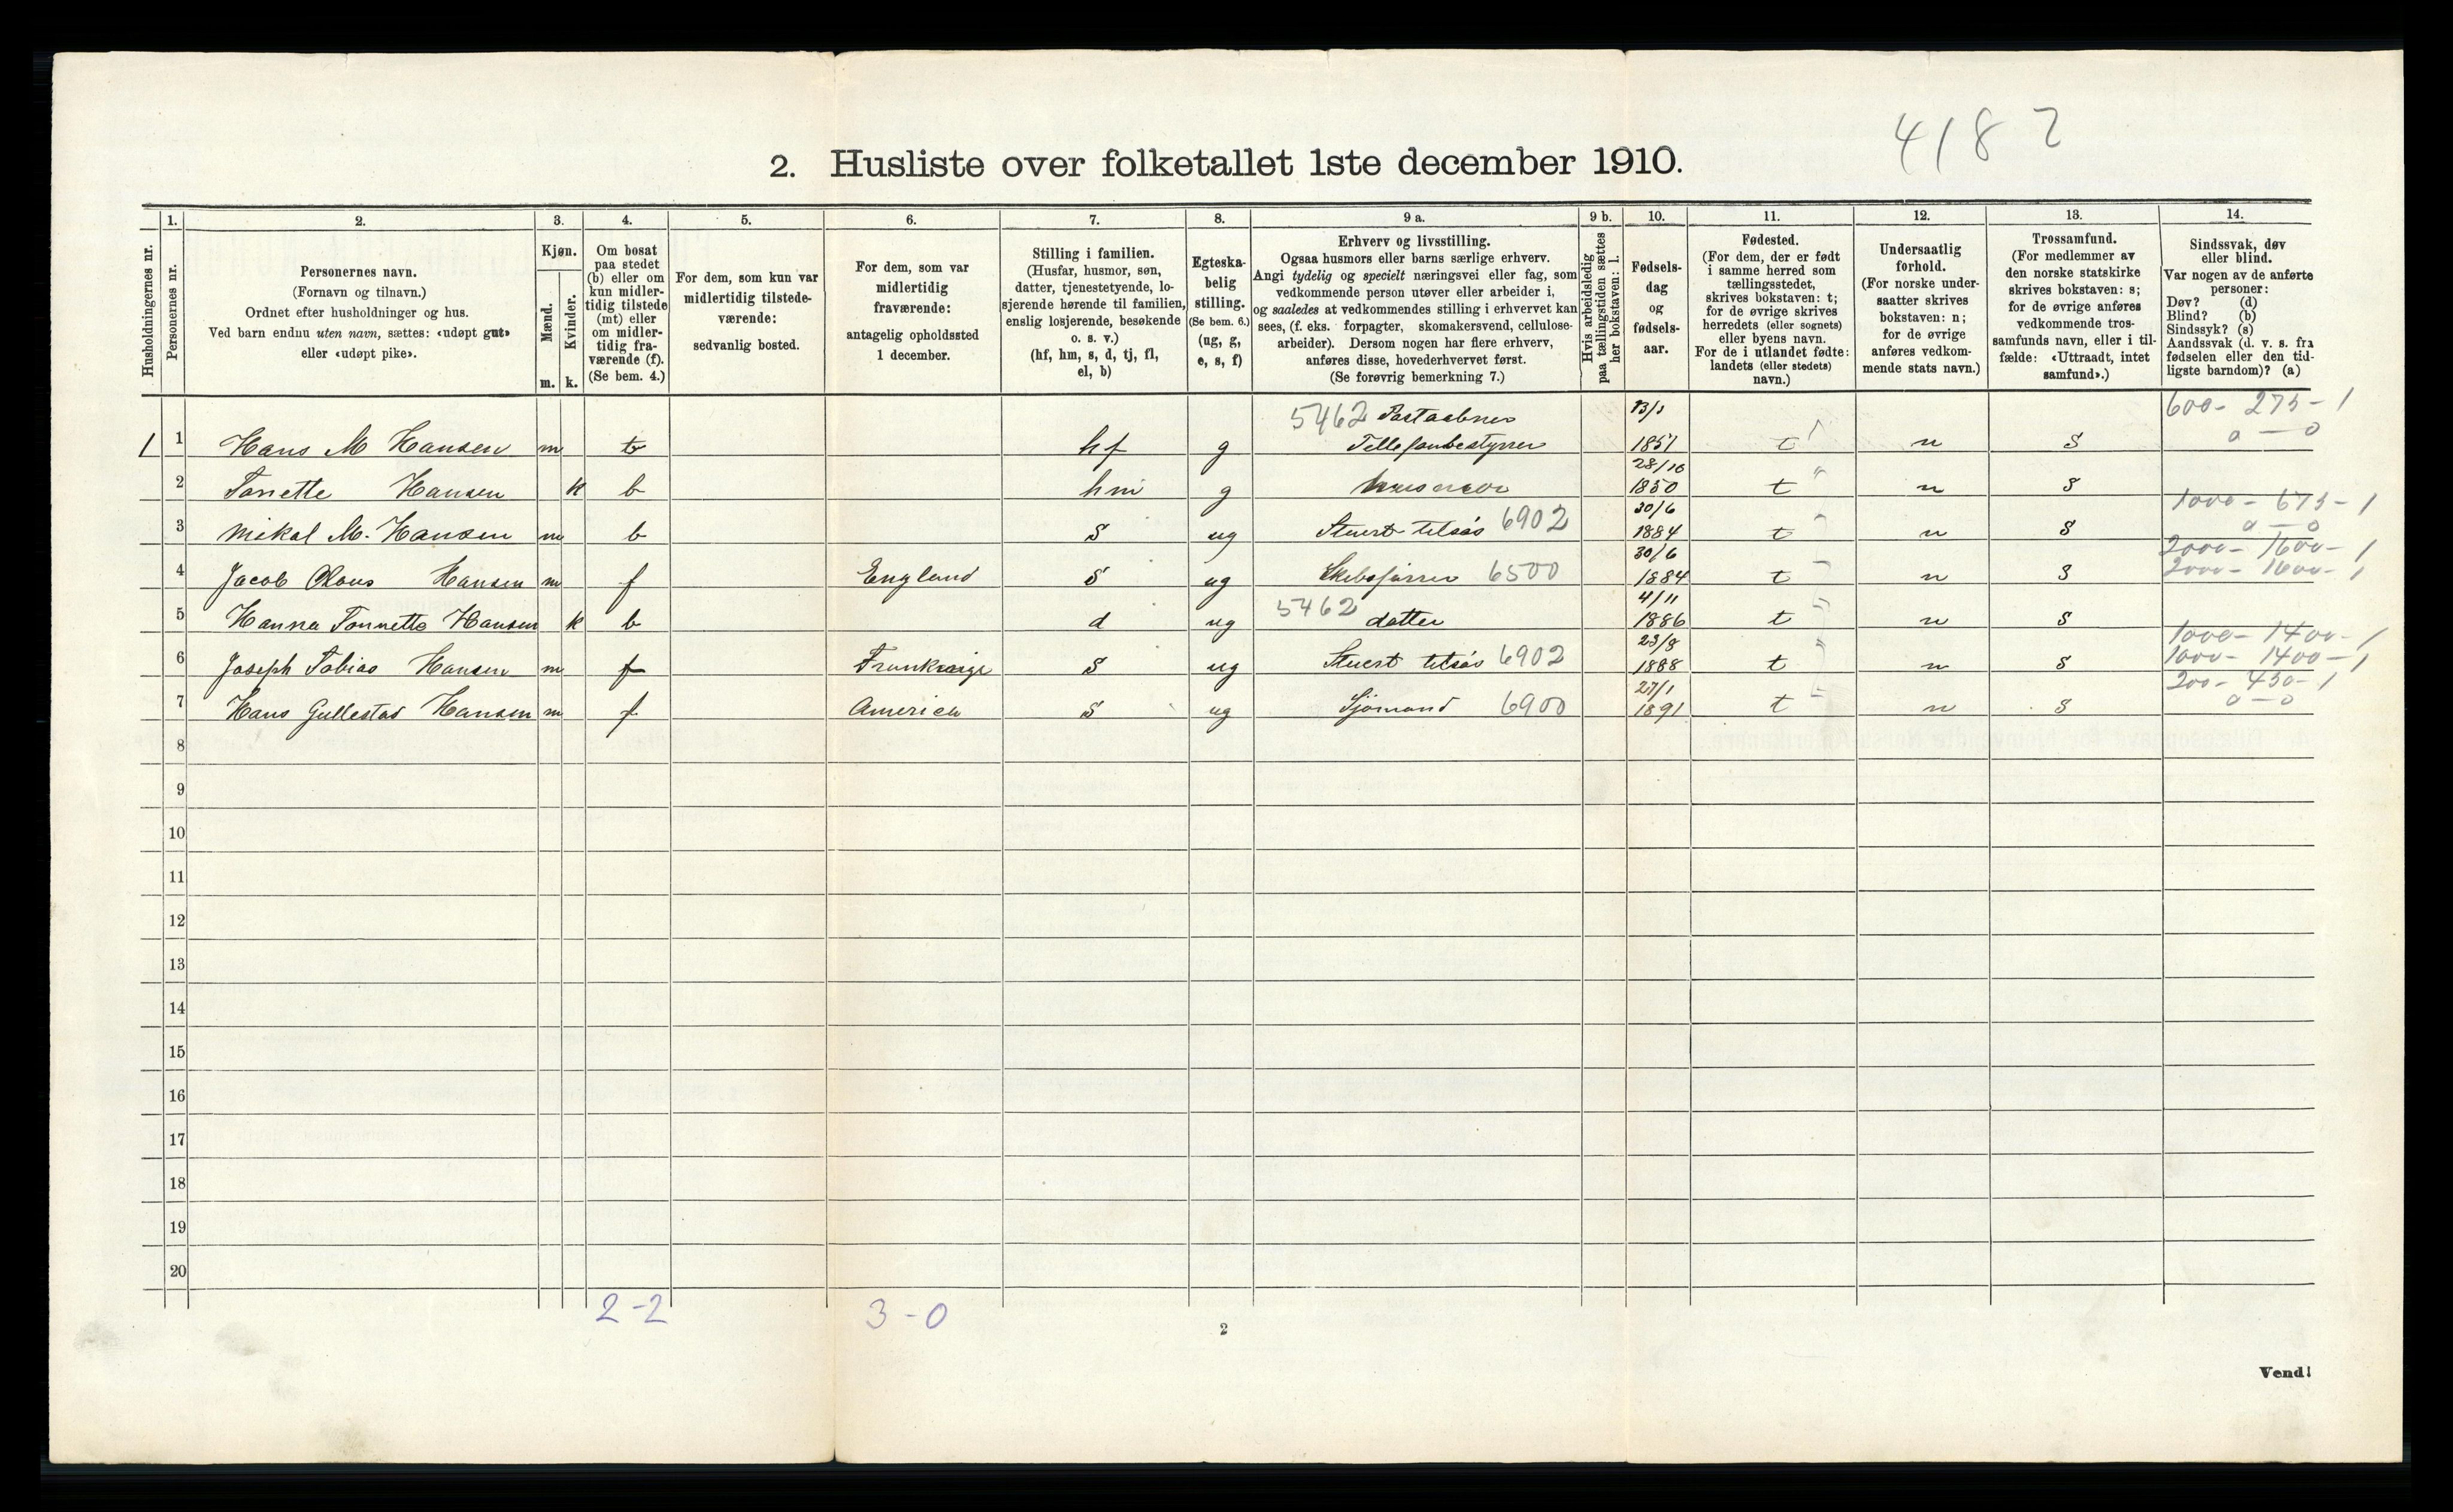 4182
2. Husliste over folketallet 1ste december 1910.
Husholdningernes nr.
1.
Personernes nr.
2.
Personernes navn.
(Fornavn og tilnavn.)
Ordnet efter husholdninger og hus.
Ved barn endnu uten navn, sættes: «udøpt gut»
eller «udøpt pike».
3.
Kjøn.
Mænd.
Kvinder.
m. k.
4.
Om bosat
paa stedet
(b) eller om
kun midler-
tidig tilstede
(mt) eller
om midler-
tidig fra-
værende (f).
(Se bem. 4.)
5.
For dem, som kun var
midlertidig tilstede-
værende:
sedvanlig bosted.
6.
For dem, som var
midlertidig
fraværende:
antagelig opholdssted
1 december.
7.
Stilling i familien.
(Husfar, husmor, søn,
datter, tjenestetyende, lo-
sjerende hørende til familien,
enslig losjerende, besøkende
o. s. v.)
(hf, hm, s, d, tj, fl,
el, b)
8.
Egteska-
belig
stilling.
(Se bem. 6.)
(ug, g,
e, s, f)
9 a.
Erhverv og livsstilling.
Ogsaa husmors eller barns særlige erhverv.
Angi tydelig og specielt næringsvei eller fag, som
vedkommende person utøver eller arbeider i,
og saaledes at vedkommendes stilling i erhvervet kan
sees, (f. eks. forpagter, skomakersvend, cellulose-
arbeider). Dersom nogen har flere erhverv,
anføres disse, hovederhvervet først.
(Se forøvrig bemerkning 7.)
9 b.
Hvis arbeidsledig
paa tællingstiden sættes
her bokstaven: l.
10.
Fødsels-
dag
og
fødsels-
aar.
11.
Fødested.
(For dem, der er født
i samme herred som
tællingsstedet,
skrives bokstaven: t;
for de øvrige skrives
herredets (eller sognets)
eller byens navn.
For de i utlandet fødte:
landets (eller stedets)
navn.)
12.
Undersaatlig
forhold.
(For norske under-
saatter skrives
bokstaven: n;
for de øvrige
anføres vedkom-
mende stats navn.)
13.
Trossamfund.
(For medlemmer av
den norske statskirke
skrives bokstaven: s;
for de øvrige anføres
vedkommende tros-
samfunds navn, eller i til-
fælde: «Uttraadt, intet
samfund».)
14.
Sindssvak, døv
eller blind.
Var nogen av de anførte
personer:
Døv? (d)
Blind? (b)
Sindssyk? (s)
Aandssvak (d. v. s. fra
fødselen eller den tid-
ligste barndom)? (a)
5462 Postaabner 13/1 600- 275-1
1 1 Hans M Hansen m b hf g Tellefonbestyrer 1851 t n S 0 — 0
28/10
2 Tonette Hansen k b hm g husmor 1850 t n S
30/6 1000- 675-1
3 Mikal M. Hansen m b S ug Stuert tilsøs 6902 1884 t n S 0 — 0
30/6 2000- 1600-1
4 Jacob Claus Hansen m f England S ug Skibsførrer 6500 1884 t n S 2000- 1600-1
5462 4/11
5 Hanna Tonnette Hansen k b d ug datter 1886 t n S
23/8 1000- 1400-1
6 Joseph Tobias Hansen m f Frankreige S ug Stuert tilsøs 6902 1888 t n S 1000- 1400-1
27/1 200- 450-1
7 Hans Gullestad Hansen m f America S ug Sjömand 6900 1891 t n S 0 — 0
8
9
10
11
12
13
14
15
16
17
18
19
20
2-2 3-0
2
Vend!